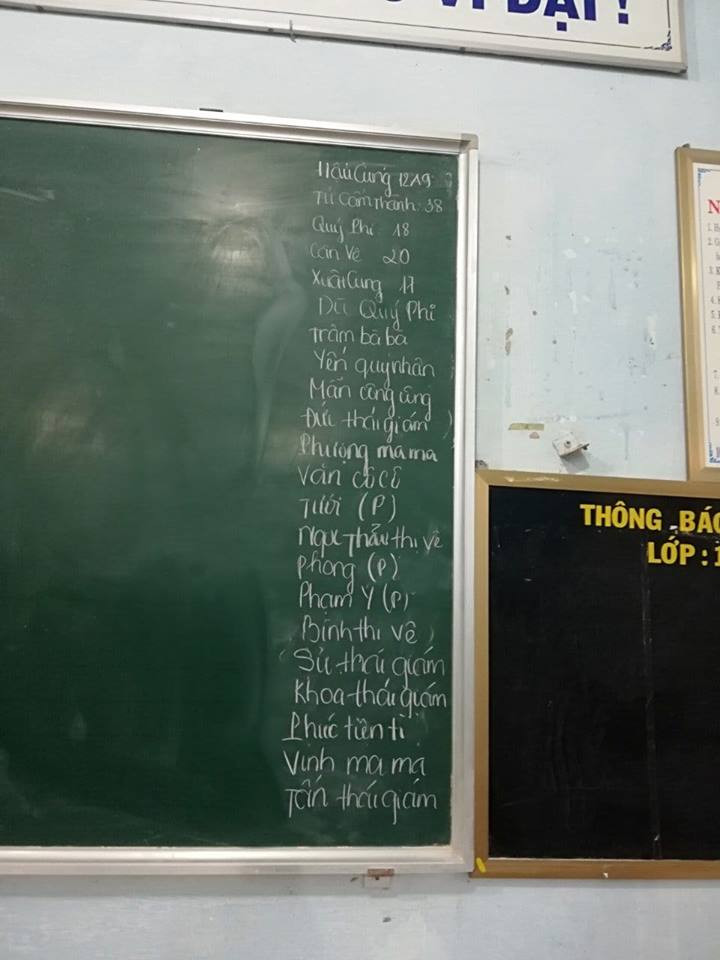 VĨ ĐẠI !
Hậu Cung 12A9
Tử Cấm Thành: 38
Quý Phi 18
Cẩn Vê 20
Xuân Cung 17
Dũ Quý Phi
Trâm bà bà
Yến quý nhân
Mẫn công công
Đức thái giám
Phượng ma ma
Vân cô cô
Tưới (P)
Ngọc Thẩu thị vê
Phong (P)
Phạm Ý (P)
Bình thị vê
Sử thái giám
Khoa thái giám
Phúc tiên tì
Vinh ma ma
Tấn thái giám
THÔNG BÁO
LỚP : 1
N
1.
2.
3.
4.
5.
6.
7.
8.
9.